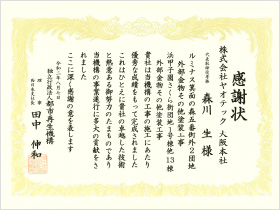 感謝状
株式会社ヤオテック 大阪本社
代表取締役常務
森川 生 様
ルミナス箕面の森五番街外2団地
外部金物その他塗装工事
浜甲子園さくら街団地1号棟他13棟
外部金物その他塗装工事
貴社は当機構の工事の施工にあたり
優秀な成績をもって完成されました
これはひとえに貴社の卓越した技術
と熱意あるご努力のたまものであり
当機構の事業遂行に多大の貢献をさ
れました
ここに深く感謝の意を表します
令和二年八月七日
独立行政法人都市再生機構
西日本支社長
理事
田中 伸和